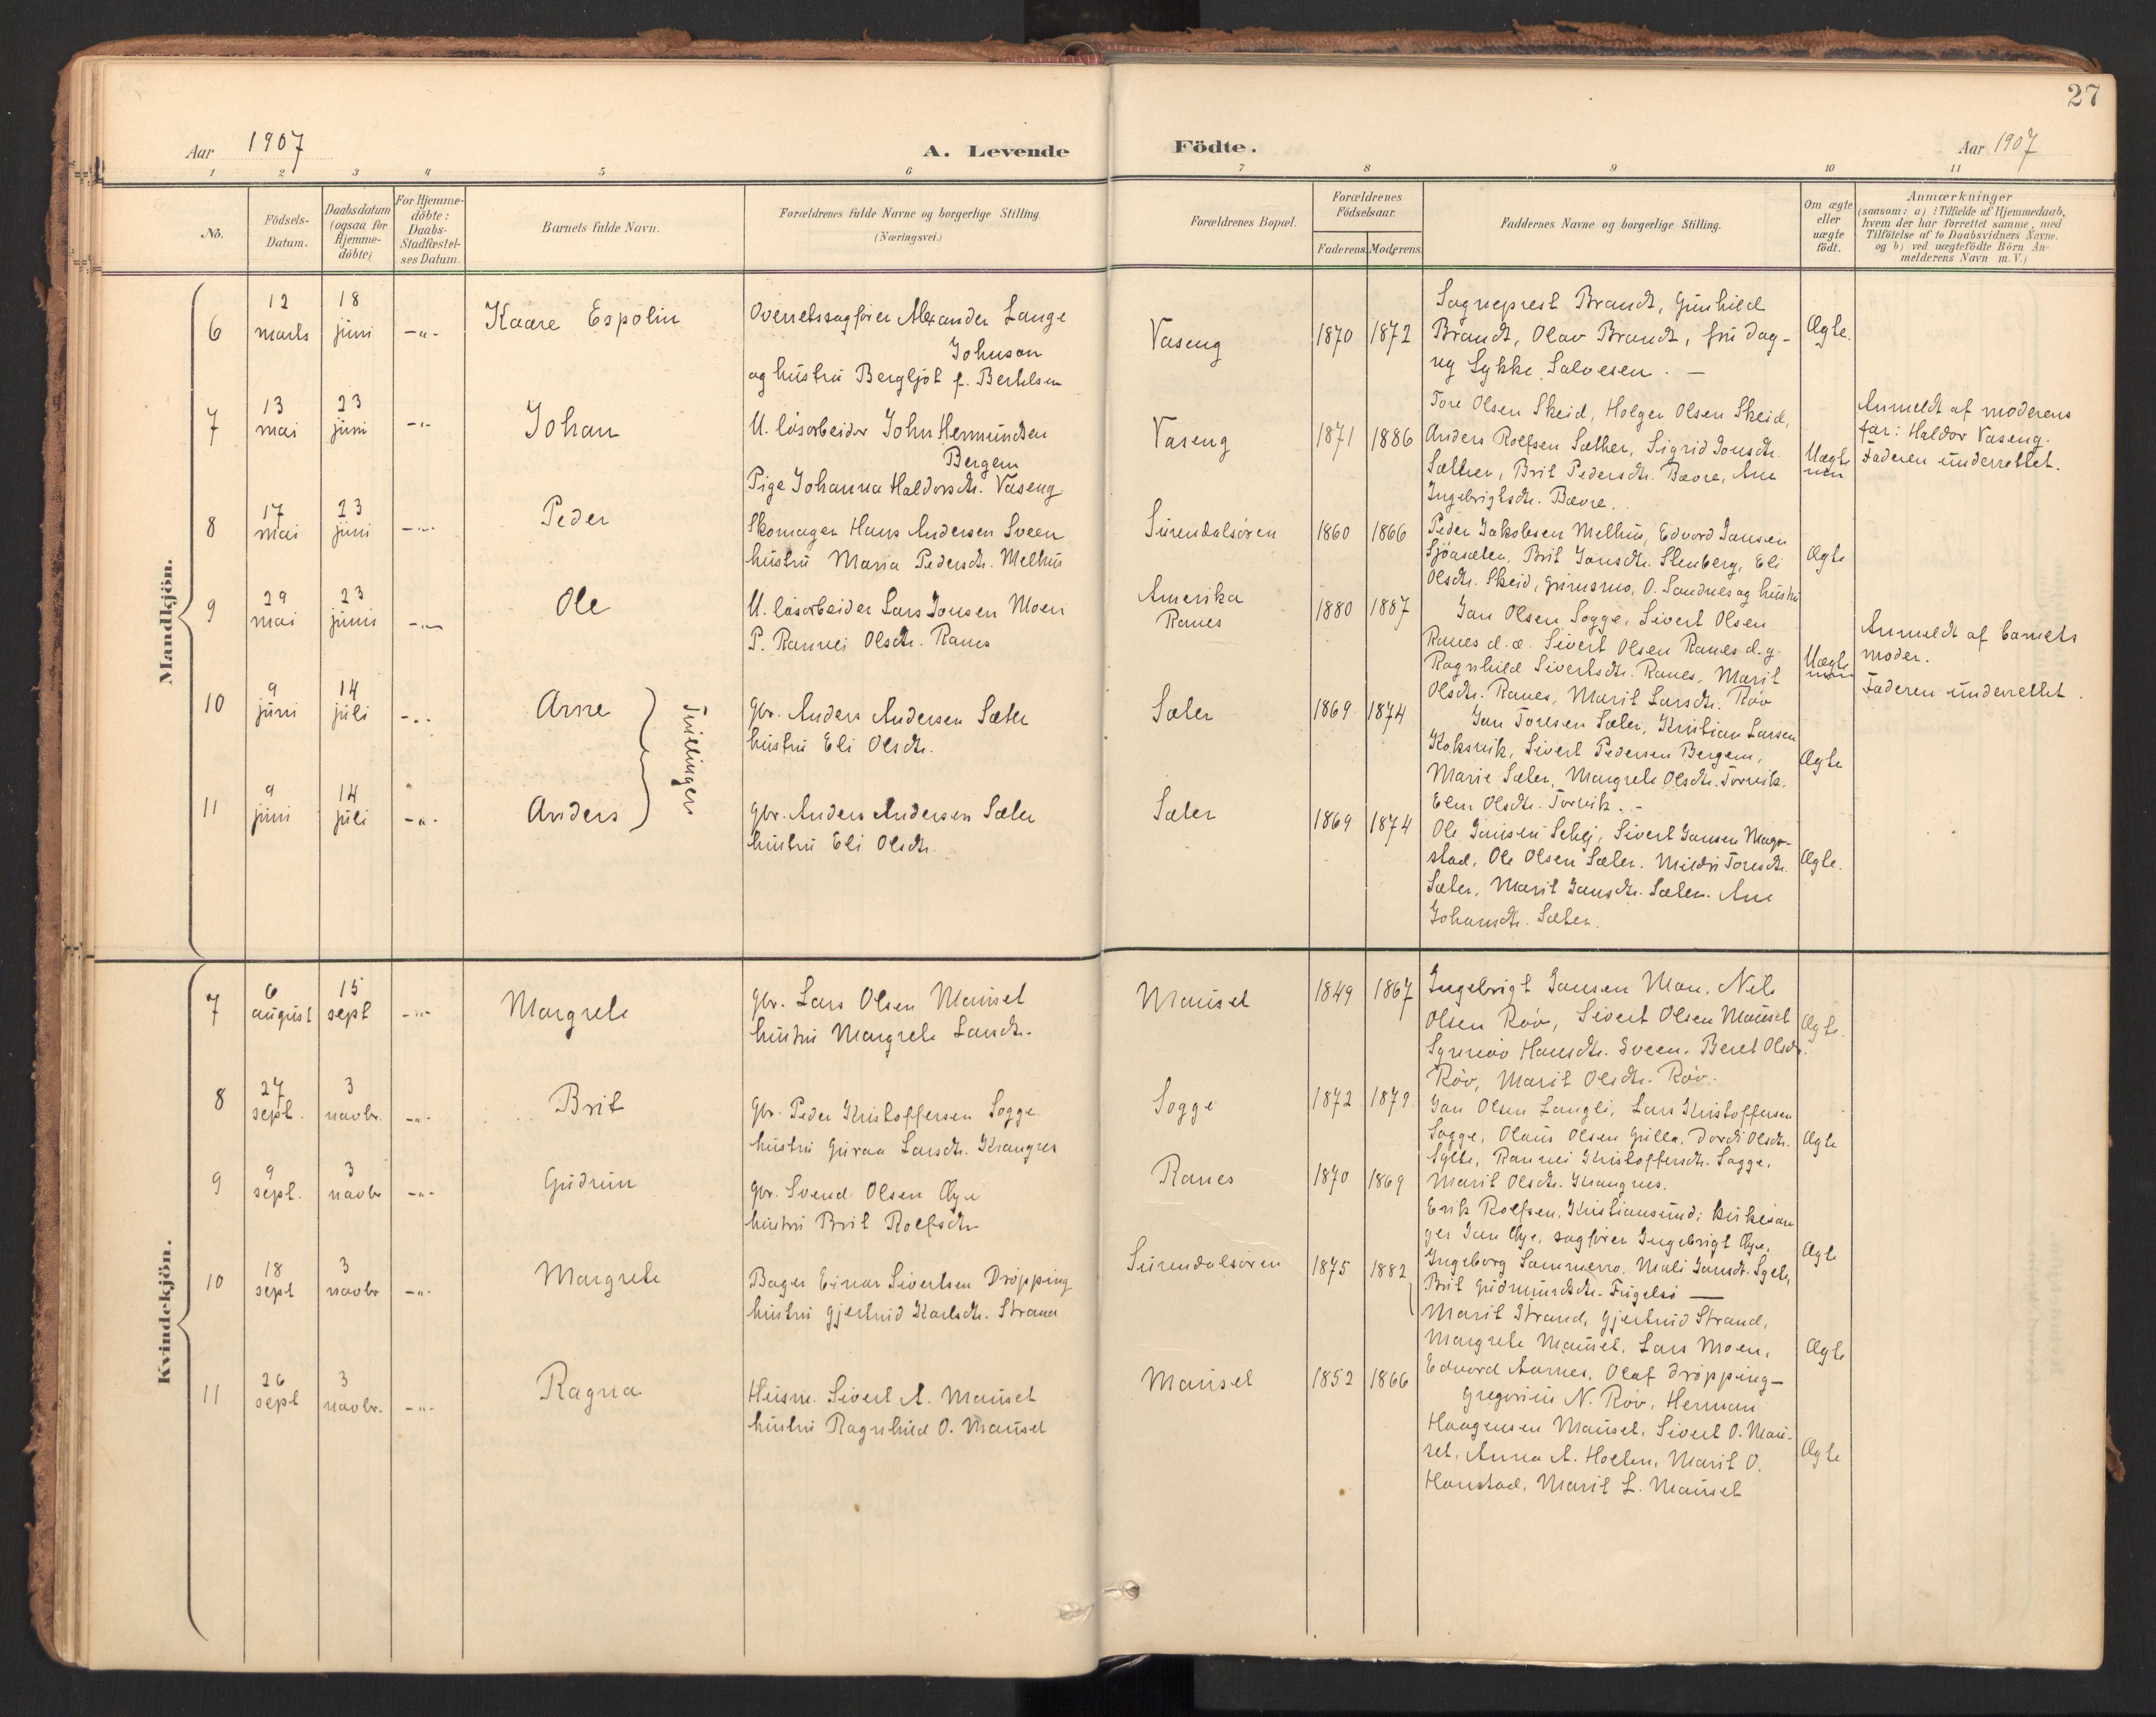 27
Aar 1907
A. Levende
Födte.
Aar 1907
1 2 3 4 5 6 7 8 9 10 11
No.
Födsels-
Datum.
Daabsdatum
(ogsaa for
Hjemme-
döbte)
For Hjemme-
döbte:
Daabs-
Stadfæstel-
ses Datum.
Barnets fulde Navn.
Forældrenes fulde Navne og borgerlige Stilling.
(Næringsvei.)
Forældrenes Bopæl.
Forældrenes
Födselsaar.
Faderens. Moderens.
Faddernes Navne og borgerlige Stilling.
Om ægte
eller
uægte
födt.
Anmærkninger
(saasom: a) i Tilfælde af Hjemmedaab,
hvem der har forrettet samme, med
Tilföielse af to Daabsvidners Navne.
og b) ved uægtefödte Börn An-
melderens Navn m. V.)
Mandkjön.
6
12
marts
18
juni
-"-
Kaare Espolin
Overretssagfører Alexander Lange
Johnson
og hustru Bergljot f. Berthelsen
Vaseng
1870 1872
Sogneprest Brandt, Gunhild
Brandt, Olav Brandt, fru Dag-
ny Lykke Salvesen. —
Ægte.
7
13
mai
23
juni
-"-
Johan
U. løsarbeider John Hermundsen
Bergem
Pige Johanna Haldorsdtr. Vaseng
Vaseng
1871 1886
Tore Olsen Skeid, Holger Olsen Skeid,
Anders Rolfsen Sæther, Sigrid Jonsdtr.
Sæther, Brit Pedersdtr. Bævre, Ane
Ingebrigtsdtr. Bævre.
Uægte
Anmeldt af moderens
far: Haldor Vaseng.
Faderen underrettet.
8
17
mai
23
juni
-"-
Peder
Skomager Hans Andersen Sveen
hustru Maria Pedersdtr. Melhus
Surendalsøren
1860 1866
Peder Jakobsen Melhus, Edvard Jansen
Sjøasæter, Brit Jonsdtr. Stenberg, Eli
Olsdtr. Skeid, O. Sandnes og hustru
Ægte
9
29
mai
23
juni
-"-
Ole
U. løsarbeider Lars Jonsen Moen
P. Rannei Olsdtr. Ranes
Amerika
Ranes
1880 1887
Jon Olsen Sogge, Sivert Olsen
Ranes d. æ. Sivert Olsen Ranes d. y.
Ragnhild Sivertsdtr. Ranes, Marit
Olsdtr. Ranes, Marit Larsdtr. Røv
Uægte
Anmeldt af barnets
moder.
Faderen underrettet.
10
9
juni
14
juli
-"-
Arne
Tvillinger
gbr. Anders Andersen Sæter
hustru Eli Olsdtr.
Sæter
1869 1874
Jon Toresen Sæter, Kristian Larsen
Koksvik, Sivert Pedersen Bergem,
Marie Sæter, Margrete Olsdtr. Torvik,
Elen Olsdtr. Torvik. -
Ægte
11
9
juni
14
juli
-"-
Anders
gbr. Anders Andersen Sæter
hustru Eli Olsdtr.
Sæter
1869 1874
Ole Jonsen Settej, Sivert Jonsen Mogs-
stad, Ole Olsen Sæter. Mildri Toresdtr.
Sæter, Marit Jonsdtr. Sæter. Ane
Johansdtr. Sæter.
Ægte.
Kvindekjön.
7
6
august
15
sept
-"-
Margrete
gbr. Lars Olsen Mauset
hustru Margrete Larsdtr.
Mauset
1849 1867
Ingebrigt Jonsen Moen, Nils
Olsen Røv, Sivert Olsen Mauset
Synnøv Hansdtr. Sveen. Beret Olsdtr.
Røv, Marit Olsdtr. Røv.
Ægte.
8
27
sept.
3
novbr.
-"-
Brit
gbr. Peder Kristoffersen Sogge
hustru Guroa Larsdtr. Krangnes
Sogge
1872 1879
Jon Olsen Langli, Lars Kristoffersen
Sogge, Olaus Olsen Gulla, Dordi Olsdtr.
Sylte, Rannei Kristoffersdtr. Sogge,
Marit Olsdtr. Krangnes.
Ægte
9
9
sept.
3
novbr
-"-
Gudrun
gbr. Svend Olsen Øye
hustru Brit Rolfsdtr
Ranes
1870 1869
Erik Rolfsen, Kristiansund; kirkesan
ger Jon Øye, sagfører Ingebrigt Øye,
Ingeborg Sommerro, Mali Jonsdtr. Sylte,
Brit Gudmundsdtr. Fugelsø —
Ægte
10
18
sept
3
novbr
-"-
Margrete
Bager Einar Sivertsen Drøpping
hustru Gjertrud Karlsdtr. Strand
Surendalsøren
1875 1882
Marit Strand, Gjertrud Strand,
Margrete Mauset, Lars Moen,
Edvard Aarnes, Olaf Drøpping—
Ægte
11
26
sept
3
novbr.
-"-
Ragna
Husm. Sivert A. Mauset
hustru Ragnhild O. Mauset
Mauset
1852 1866
Gregorius N. Røv, Herman
Haagensen Mauset, Sivert O. Mau-
set, Anna A. Holten, Marit O.
Honstad, Marit L. Mauset
Ægte